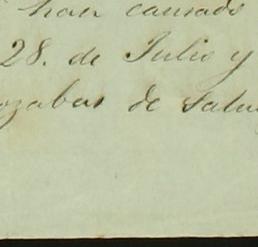 han causado
28. de Julio y
ozabas de salu